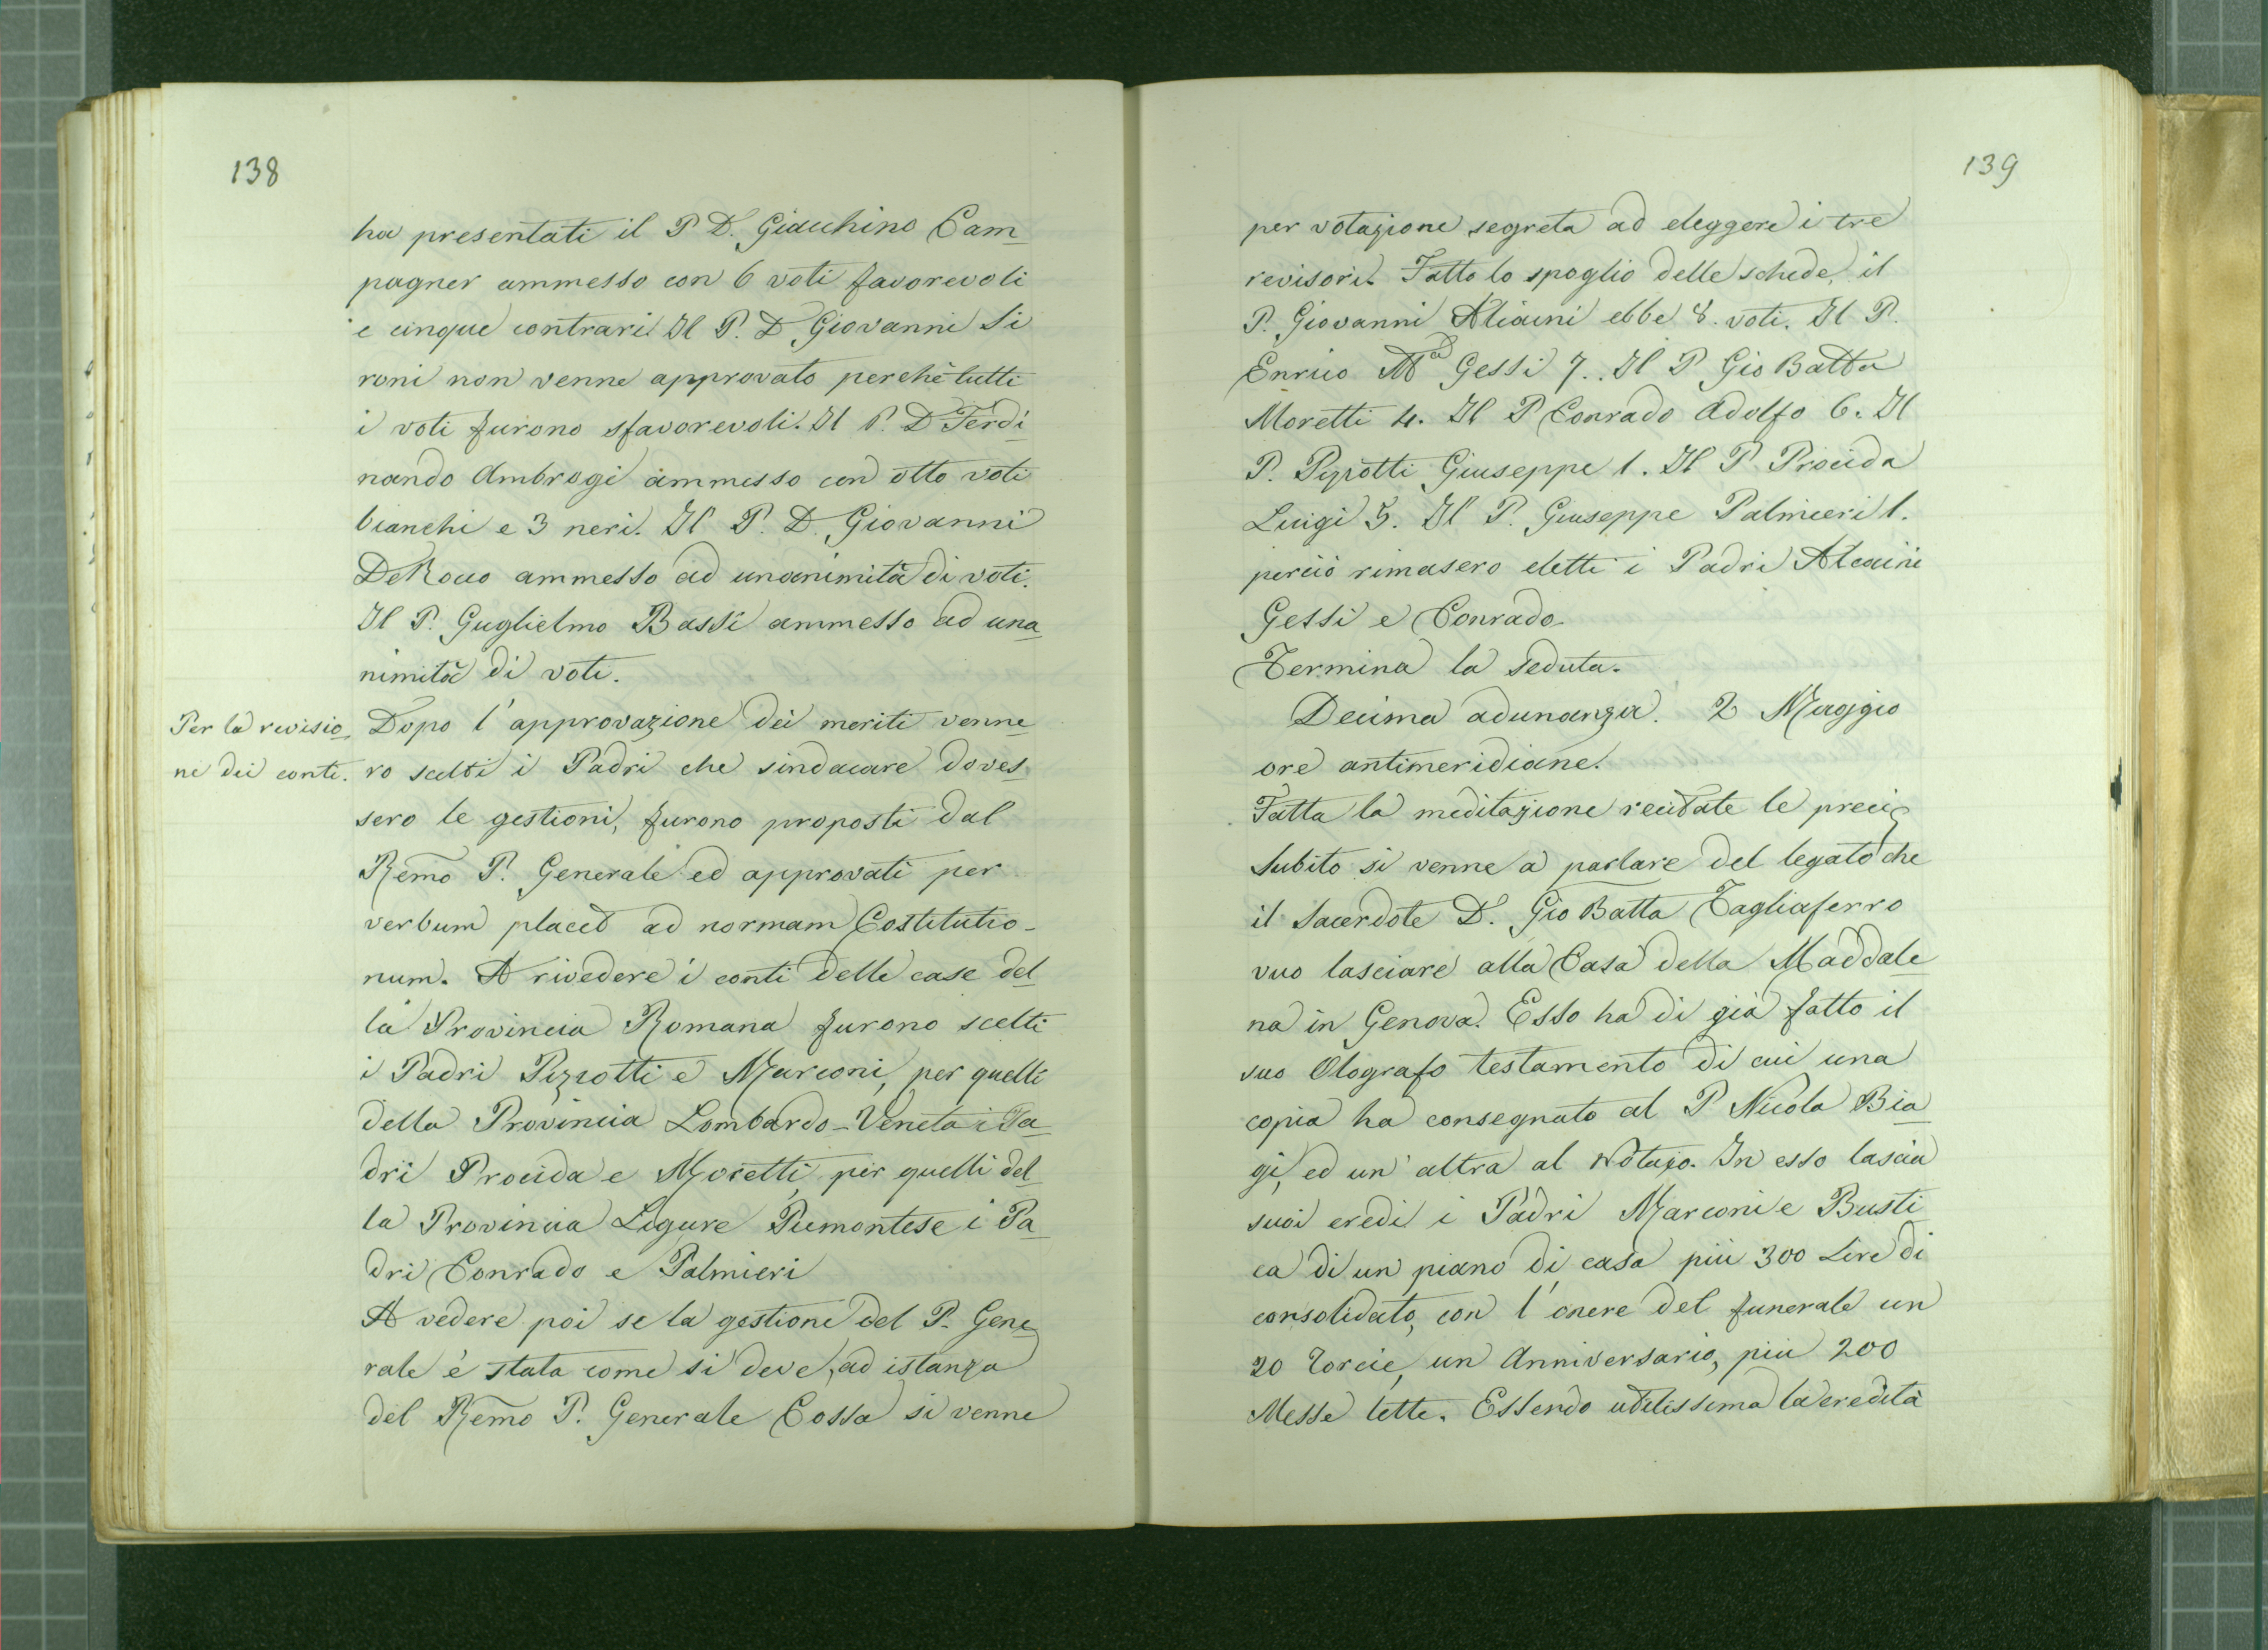 138
ha presentati il P D. Giacchino Cam
pagner ammesso con 6 voti favorevoli
e cinque contrari. Il P. D Giovanni Si
roni non venne approvato perchè tutti
i voti furono sfavorevoli. Il P. D Ferdi
nando Ambrogi ammesso con otto voti
bianchi e 3 neri. Il P. D. Giovanni
DeRocco ammesso ad unanimità di voti.
Il P. Guglielmo Bassi ammesso ad una
nimità di voti.
Per la revisio
ne dei conti.
Dopo l'approvazione dei meriti venne
ro scelti i Padri che sindacare doves
sero le gestioni, furono proposti dal
Remo P. Generale ed approvati per
verbum placet ad normam Costitutio-
num. A rivedere i conti delle case del
la Provincia Romana furono scelti
i Padri Pizzotti e Marconi, per quelli
della Provincia Lombardo-Veneta i Pa
dri Procida e Moretti, per quelli del
la Provincia Ligure Piemontese i Pa
dri Conrado e Palmieri
A vedere poi se la gestione del P. Gene
rale è stata come si deve, ad istanza
del Remo P. Generale Cossa si venne
139
per votazione segreta ad eleggere i tre
revisori. Fatto lo spoglio delle schede, il
P. Giovanni Alcaini ebbe 8. voti. Il P.
Enrico Ma Gessi 7.. Il P Gio Batta
Moretti 4. Il P Conrado Adolfo 6. Il
P. Pizzotti Giuseppe 1. Il P. Procida
Luigi 5. Il P. Giuseppe Palmieri 1.
perciò rimasero eletti i Padri Alcaini
Gessi e Conrado.
Termina la seduta.
Decima adunanza. 2 Maggio
ore antimeridiane.
Fatta la meditazione recitate le preci
Subito si venne a parlare del legato che
il Sacerdote D. Gio Batta Tagliaferro
vuo lasciare alla Casa della Maddale
na in Genova. Esso ha di già fatto il
suo Olografo testamento di cui una
copia ha consegnato al P Nicola Bia
gi, ed un' altra al Notajo. In esso lascia
suoi eredi i Padri Marconi e Busti
ca di un piano di casa più 300 Lire di
consolidato, con l'onere del funerale un
20 Torcie, un Anniversario, più 200
Messe lette. Essendo utilissima la eredità